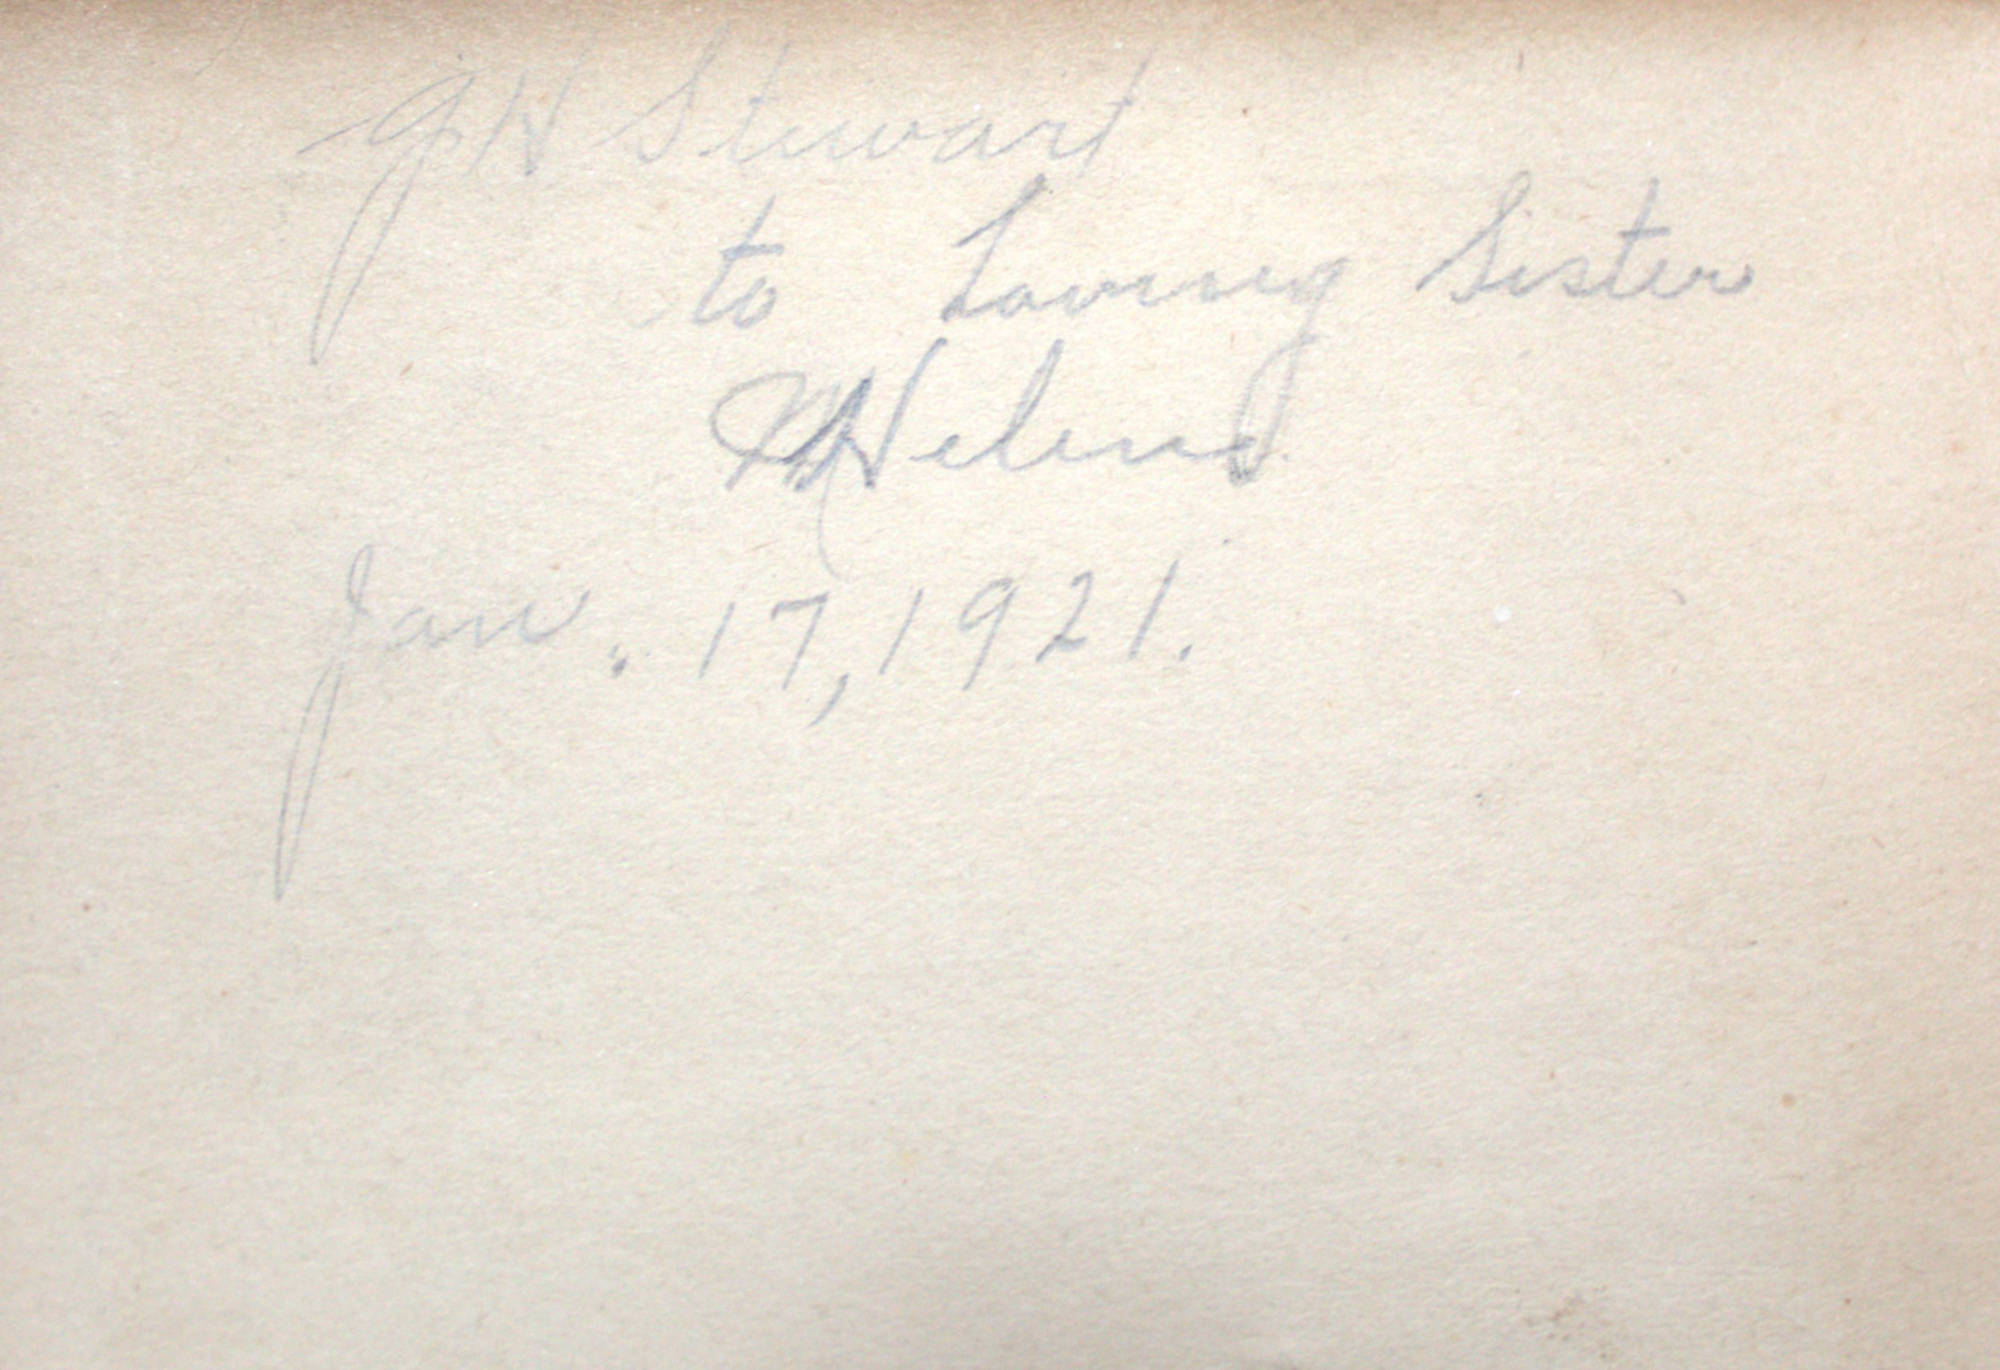 JH Stewart
to Loving Sister
Helen
Jan. 17, 1921.